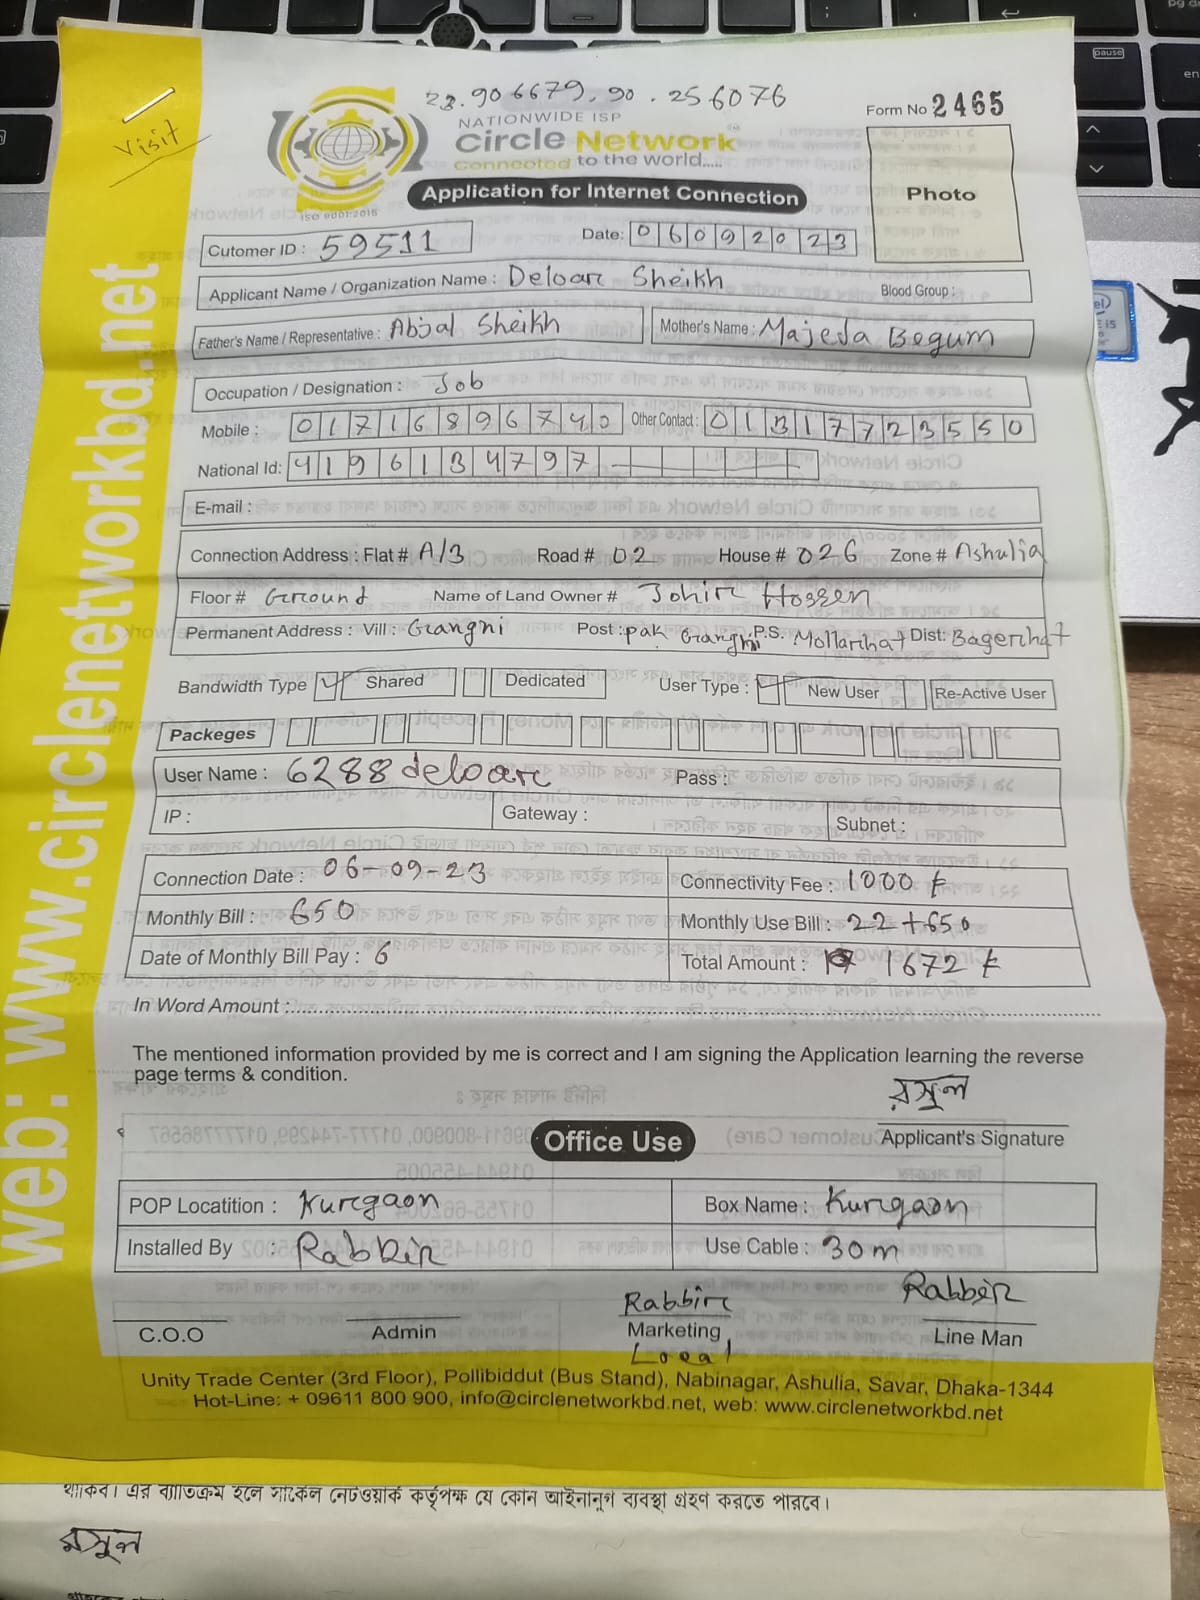 23.906679, 90.256076
Visit
NATIONWIDE ISP
Circle Network
Connected to the world.....
ISO 9001:2015
Form No 2465
Application for Internet Connection
Photo
Cutomer ID : 59511
Date: 06092023
Applicant Name / Organization Name : Deloar Sheikh
Blood Group :
Father's Name / Representative : Abjal Sheikh
Mother's Name : Majeda Begum
Occupation / Designation : Job
Mobile : 01716896740 Other Contact : 01317723550
National Id: 4196134797
E-mail :
Connection Address : Flat # A/3 Road # 02 House # 026 Zone # Ashulia
Floor # Ground Name of Land Owner # Johir Hossen
Permanent Address : Vill : Grangni Post : pak Grangni P.S. Mollarhat Dist: Bagerhat
Bandwidth Type Shared Dedicated User Type : New User Re-Active User
Packeges
User Name : 6288deloar Pass :
IP : Gateway : Subnet :
Connection Date : 06-09-23 Connectivity Fee : 1000 ৳
Monthly Bill : 650 Monthly Use Bill : 22+650
Date of Monthly Bill Pay : 6 Total Amount : 1672 ৳
In Word Amount :
The mentioned information provided by me is correct and I am signing the Application learning the reverse
page terms & condition.
রসুল
Applicant's Signature
Office Use
POP Locatition : Kurgaon Box Name : Kurgaon
Installed By : Rabbir Use Cable : 30m
Rabbir Rabbir
C.O.O Admin Marketing Line Man
Local
Unity Trade Center (3rd Floor), Pollibiddut (Bus Stand), Nabinagar, Ashulia, Savar, Dhaka-1344
Hot-Line: + 09611 800 900, info@circlenetworkbd.net, web: www.circlenetworkbd.net
web: www.circlenetworkbd.net
থাকিব। এর ব্যাতিক্রম হলে সার্কেল নেটওয়ার্ক কর্তৃপক্ষ যে কোন আইনানুগ ব্যবস্থা গ্রহণ করতে পারবে।
রসুল
pause